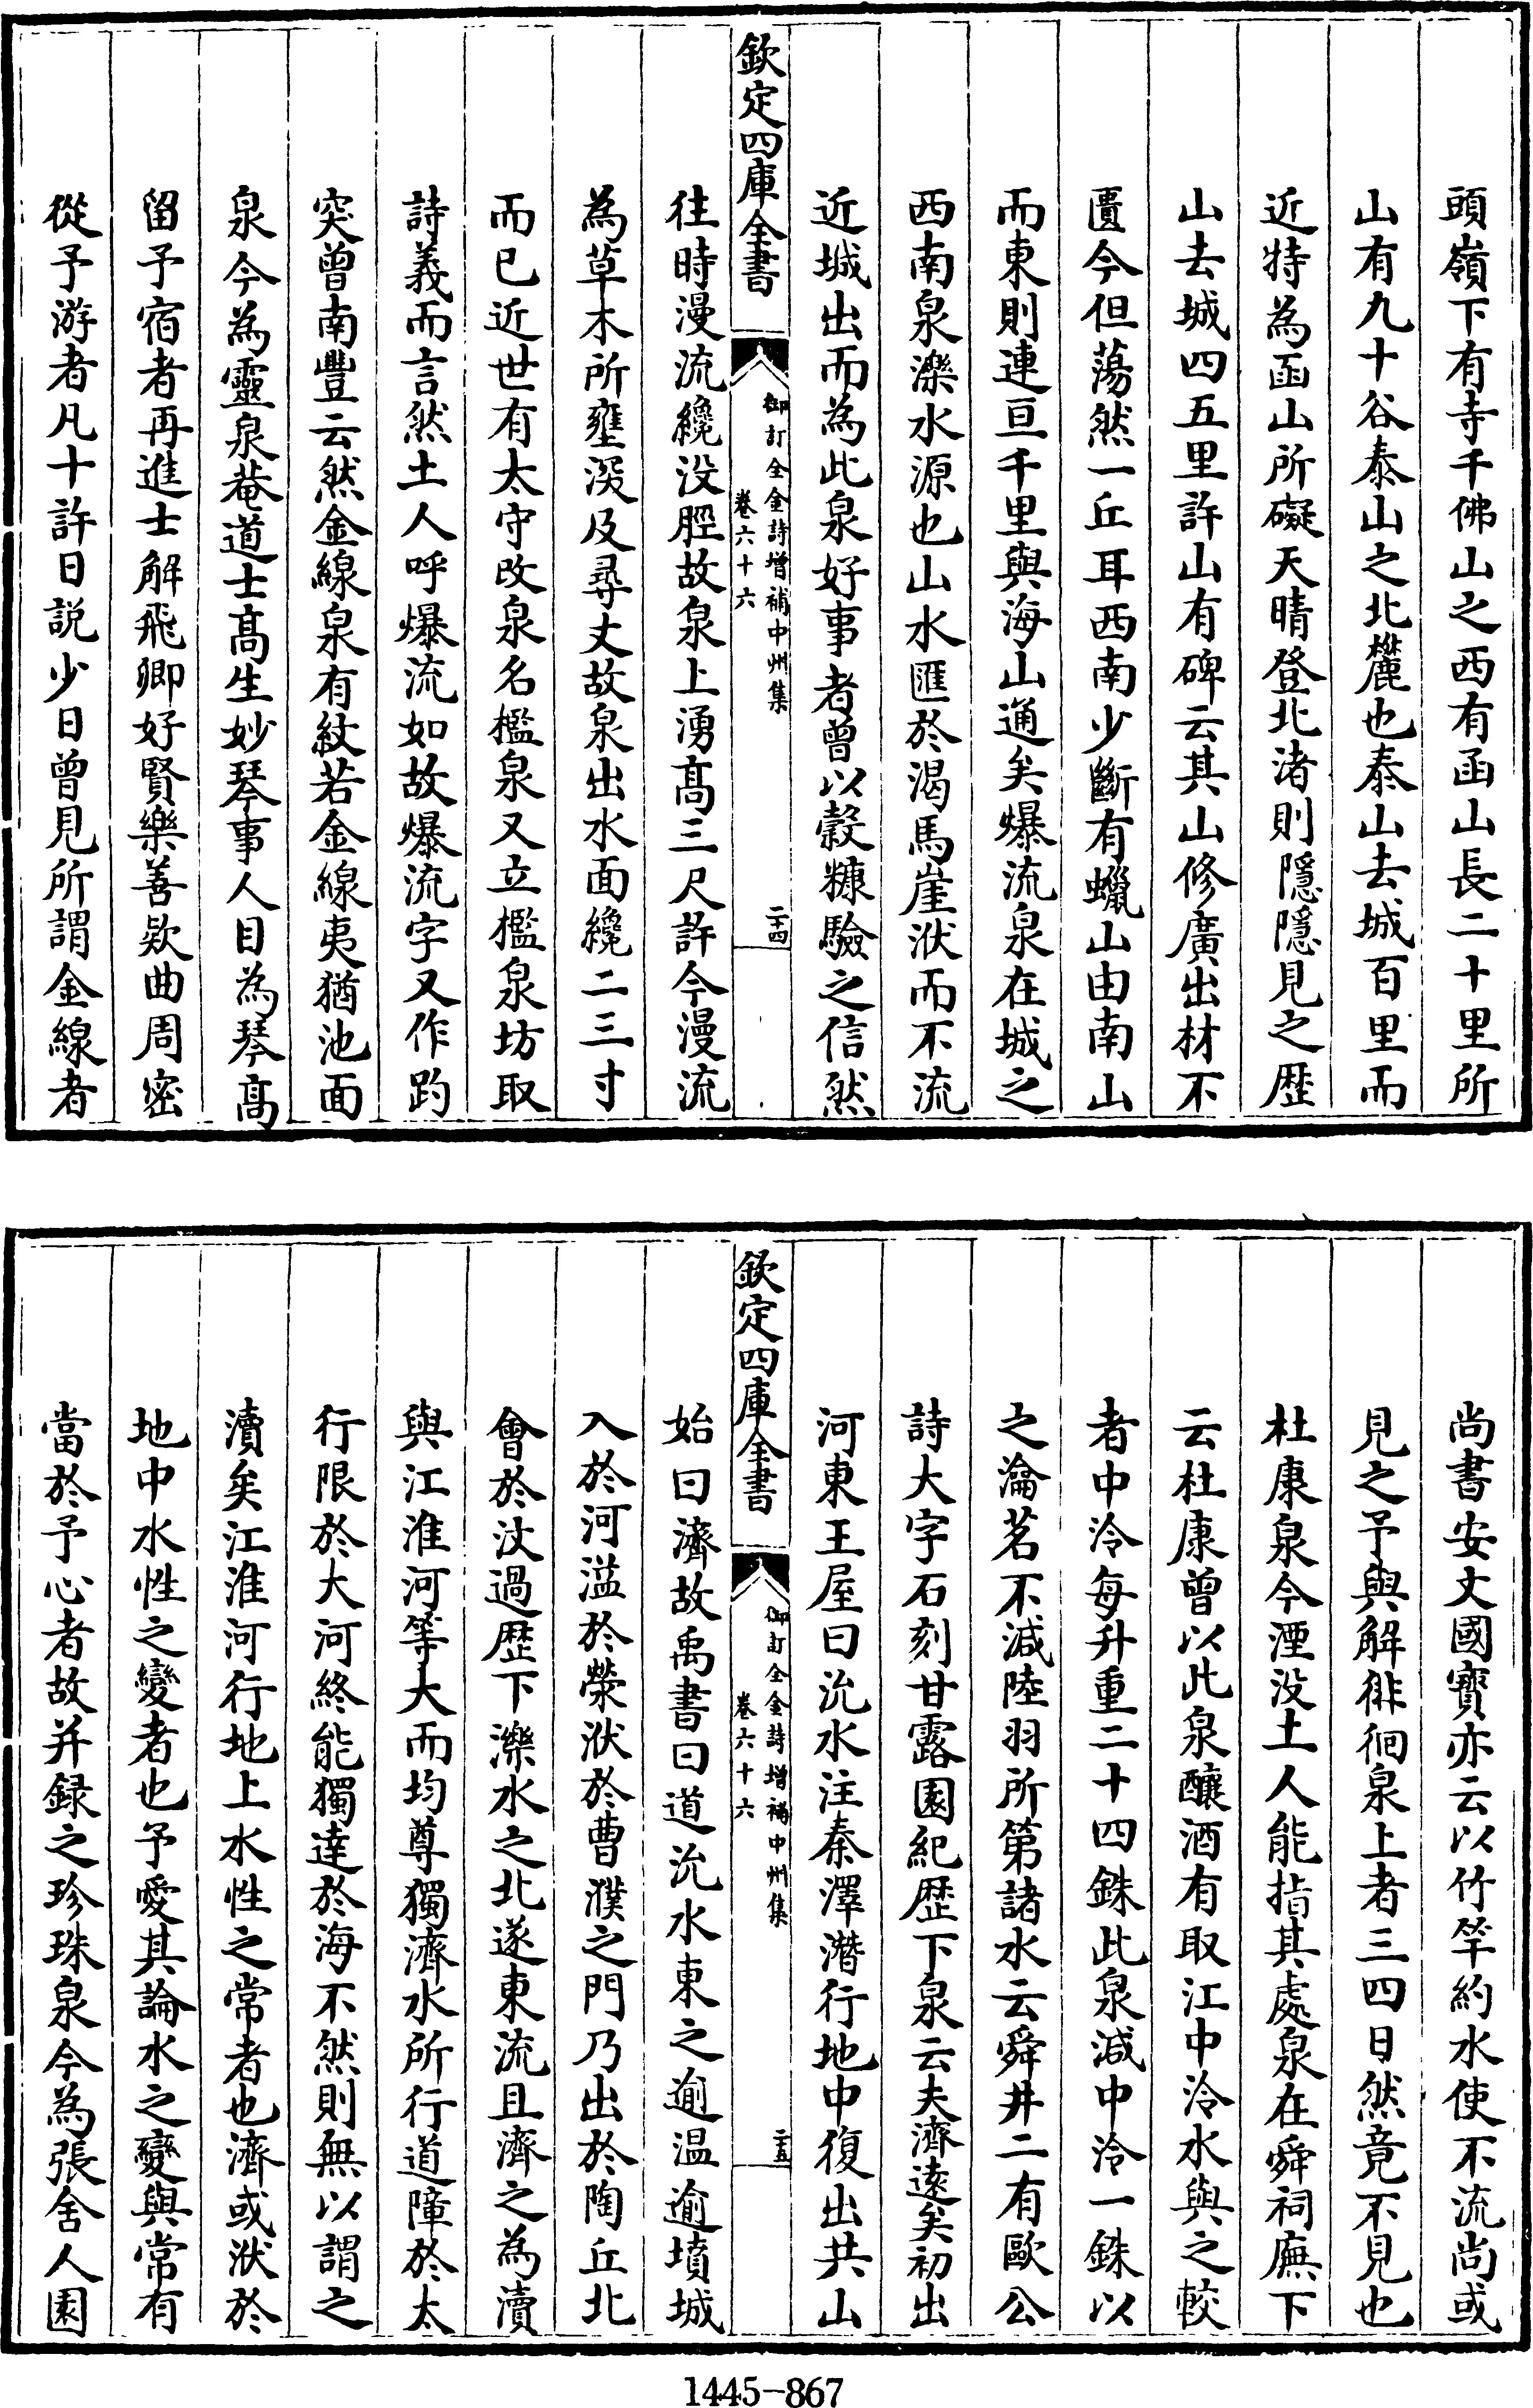 頭嶺下有寺千佛山之西有函山長二十里所
山有九十谷泰山之北麓也泰山去城百里而
近特為函山所礙天晴登北渚則隱隱見之歴
山去城四五里許山有碑云其山修廣出材不
匱今但蕩然一丘耳西南少斷有蠟山由南山
而東則連亘千里與海山通矣爆流泉在城之
西南泉濼水源也山水匯於渴馬崖洑而不流
近城出而為此泉好事者曾以糓糠驗之信然
欽定四庫全書
御訂全金詩增補中州集
卷六十六
二十四
往時漫流纔没脛故泉上湧髙三尺許今漫流
為草木所壅深及尋丈故泉出水面纔二三寸
而已近世有太守改泉名檻泉又立檻泉坊取
詩義而言然土人呼爆流如故爆流字又作趵
突曾南豐云然金線泉有紋若金線夷猶池面
泉今為靈泉菴道士髙生妙琴事人目為琴髙
留予宿者再進士解飛卿好賢樂善欵曲周密
從予游者凡十許日説少日曾見所謂金線者
尚書安文國寳亦云以竹竿約水使不流尚或
見之予與解徘徊泉上者三四日然竟不見也
杜康泉今湮没土人能指其處泉在舜祠廡下
云杜康曾以此泉釀酒有取江中泠水與之較
者中泠每升重二十四銖此泉減中泠一銖以
之瀹茗不減陸羽所第諸水云舜井二有歐公
詩大字石刻甘露園紀歴下泉云夫濟逺矣初出
河東王屋曰沇水注秦澤潛行地中復出共山
欽定四庫全書
御訂全金詩增補中州集
卷六十六
二十五
始曰濟故禹書曰道沇水東之逾温逾墳城
入於河溢於滎洑於曹濮之門乃出於陶丘北
會於汶過歴下濼水之北遂東流且濟之為瀆
與江淮河等大而均尊獨濟水所行道障於太
行限於大河終能獨達於海不然則無以謂之
瀆矣江淮河行地上水性之常者也濟或洑於
地中水性之變者也予愛其論水之變與常有
當於予心者故并録之珍珠泉今為張舍人園
1445-867